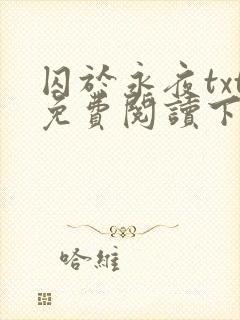 囚於永夜txt
免費閱讀下
哈維